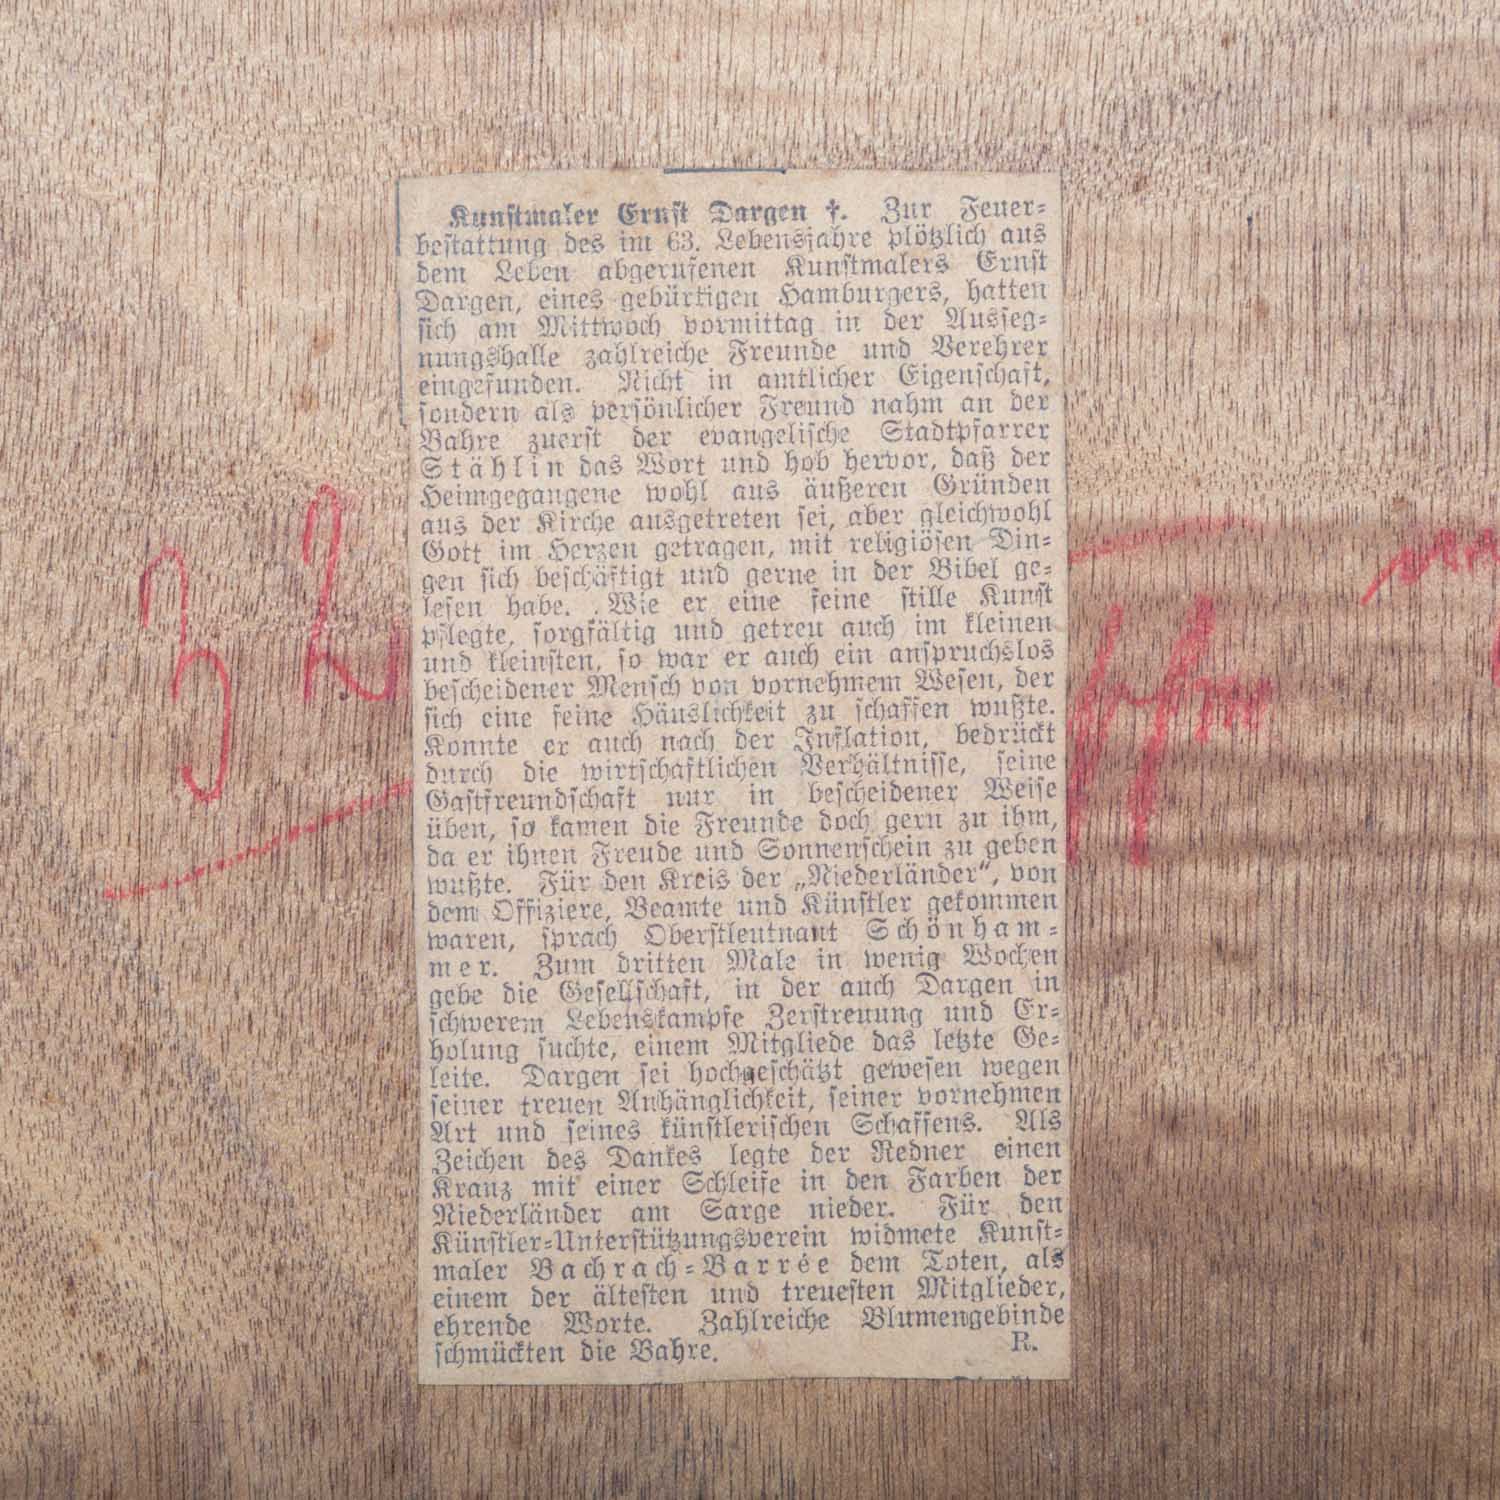 Kunstmaler Ernst Dargen †. Zur Feuer-
bestattung des im 63. Lebensjahre plötzlich aus
dem Leben abgerufenen Kunstmalers Ernst
Dargen, eines gebürtigen Hamburgers, hatten
sich am Mittwoch vormittag in der Ausseg-
nungshalle zahlreiche Freunde und Verehrer
eingefunden. Nicht in amtlicher Eigenschaft,
sondern als persönlicher Freund nahm an der
Bahre zuerst der evangelische Stadtpfarrer
Stählin das Wort und hob hervor, daß der
Heimgegangene wohl aus äußeren Gründen
aus der Kirche ausgetreten sei, aber gleichwohl
Gott im Herzen getragen, mit religiösen Din-
gen sich beschäftigt und gerne in der Bibel ge-
lesen habe. Wie er eine feine stille Kunst
pflegte, sorgfältig und getreu auch im kleinen
und kleinsten, so war er auch ein anspruchslos
bescheidener Mensch von vornehmem Wesen, der
sich eine feine Häuslichkeit zu schaffen wußte.
Konnte er auch nach der Inflation, bedrückt
durch die wirtschaftlichen Verhältnisse, seine
Gastfreundschaft nur in bescheidener Weise
üben, so kamen die Freunde doch gern zu ihm,
da er ihnen Freude und Sonnenschein zu geben
wußte. Für den Kreis der „Niederländer“, von
dem Offiziere, Beamte und Künstler gekommen
waren, sprach Oberstleutnant Schönham-
mer. Zum dritten Male in wenig Wochen
gebe die Gesellschaft, in der auch Dargen in
schwerem Lebenskampfe Zerstreuung und Er-
holung suchte, einem Mitgliede das letzte Ge-
leite. Dargen sei hochgeschätzt gewesen wegen
seiner treuen Anhänglichkeit, seiner vornehmen
Art und seines künstlerischen Schaffens. Als
Zeichen des Dankes legte der Redner einen
Kranz mit einer Schleife in den Farben der
Niederländer am Sarge nieder. Für den
Künstler-Unterstützungsverein widmete Kunst-
maler Bachrach-Barrée dem Toten, als
einem der ältesten und treuesten Mitglieder,
ehrende Worte. Zahlreiche Blumengebinde
schmückten die Bahre. R.
32